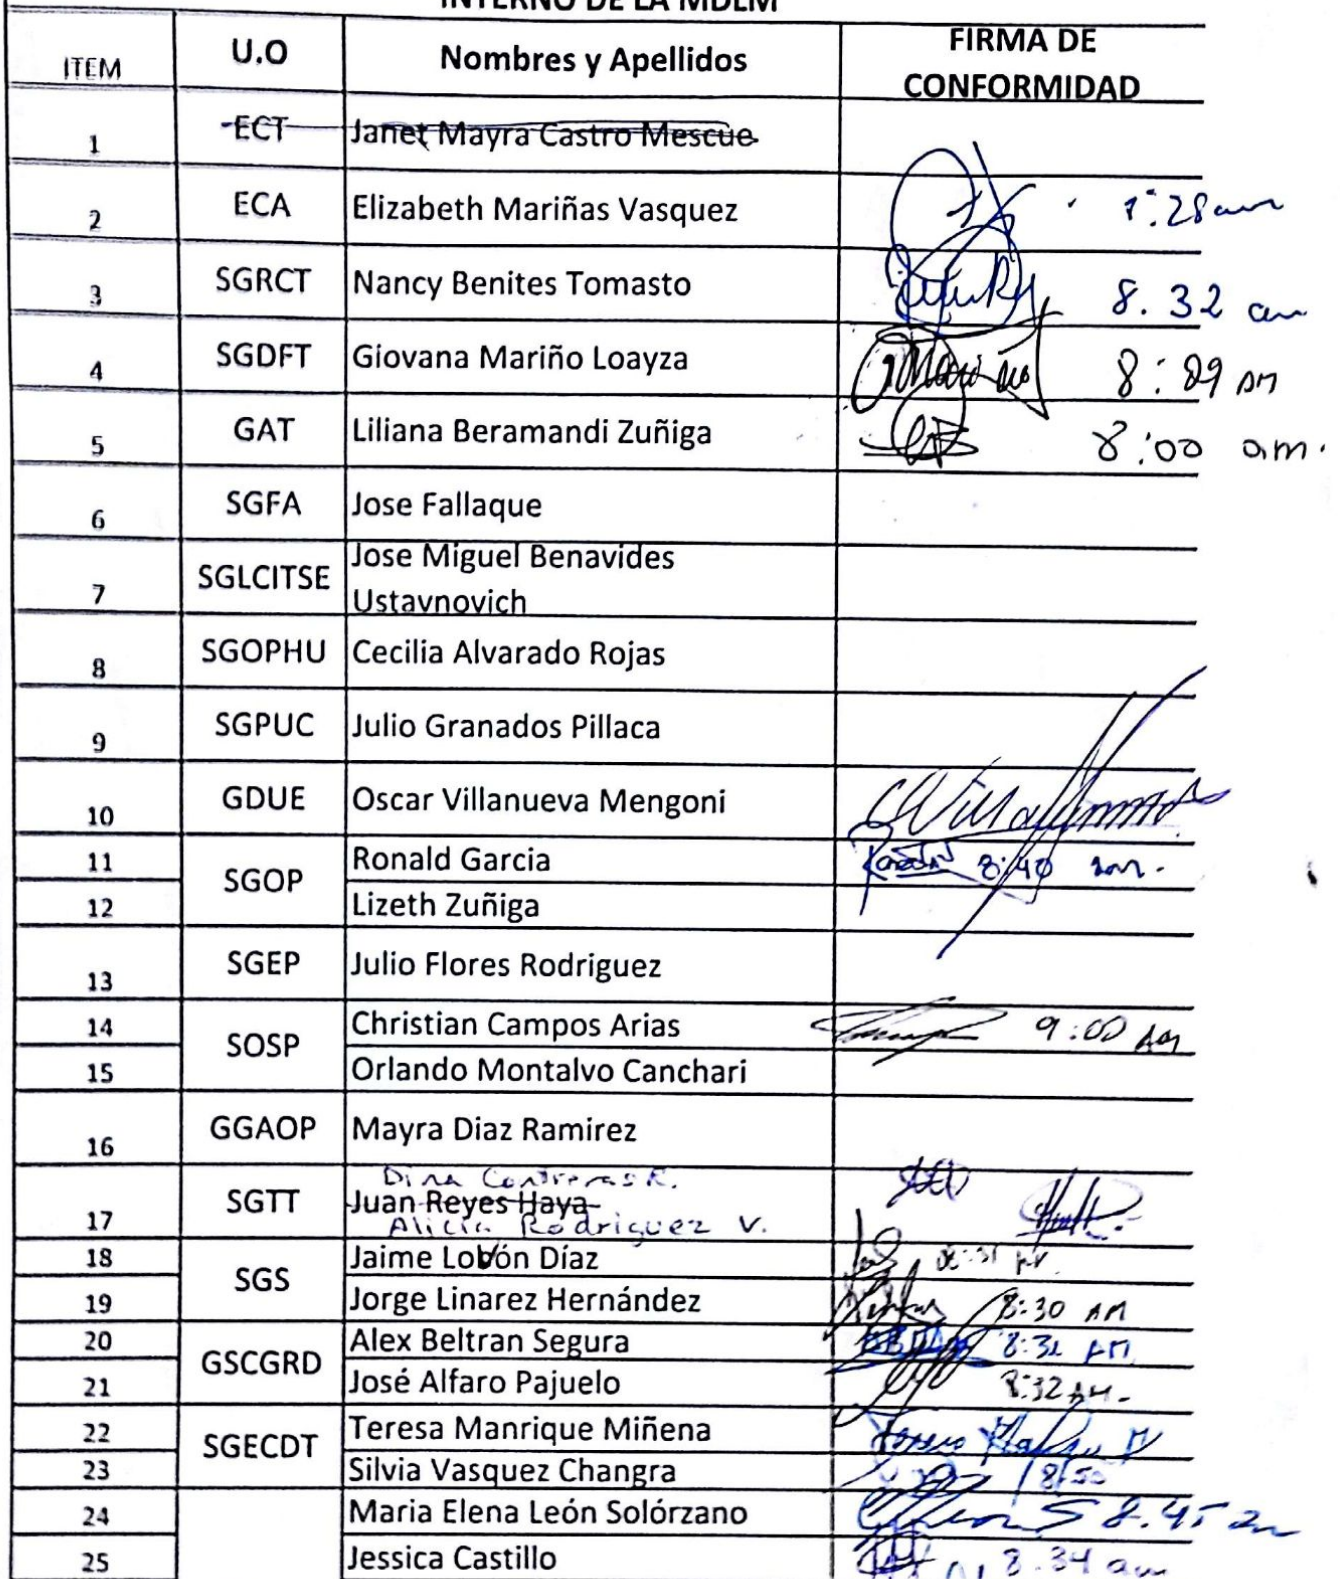 INTERNO DE LA MDLM
ITEM U.O Nombres y Apellidos FIRMA DE
CONFORMIDAD
1 ECT Janet Mayra Castro Mescue
2 ECA Elizabeth Mariñas Vasquez :28am
3 SGRCT Nancy Benites Tomasto 8.32 am
4 SGDFT Giovana Mariño Loayza 8:29 AM
5 GAT Liliana Beramandi Zuñiga 8:00 am.
6 SGFA Jose Fallaque
7 SGLCITSE Jose Miguel Benavides
Ustavnovich
8 SGOPHU Cecilia Alvarado Rojas
9 SGPUC Julio Granados Pillaca
10 GDUE Oscar Villanueva Mengoni
11 SGOP Ronald Garcia 8:40 am.
12 Lizeth Zuñiga
13 SGEP Julio Flores Rodriguez
14 SOSP Christian Campos Arias 9:00 AM
15 Orlando Montalvo Canchari
16 GGAOP Mayra Diaz Ramirez
Dina Contreras R.
17 SGTT Juan Reyes Haya
Alicia Rodriguez V.
18 SGS Jaime Lobón Díaz
19 Jorge Linarez Hernández 8:30 AM
20 GSCGRD Alex Beltran Segura 8:32 AM
21 José Alfaro Pajuelo 8:32 AM-
22 SGECDT Teresa Manrique Miñena
23 Silvia Vasquez Changra 8:50
24 Maria Elena León Solórzano 8.45 am
25 Jessica Castillo 8.34 am